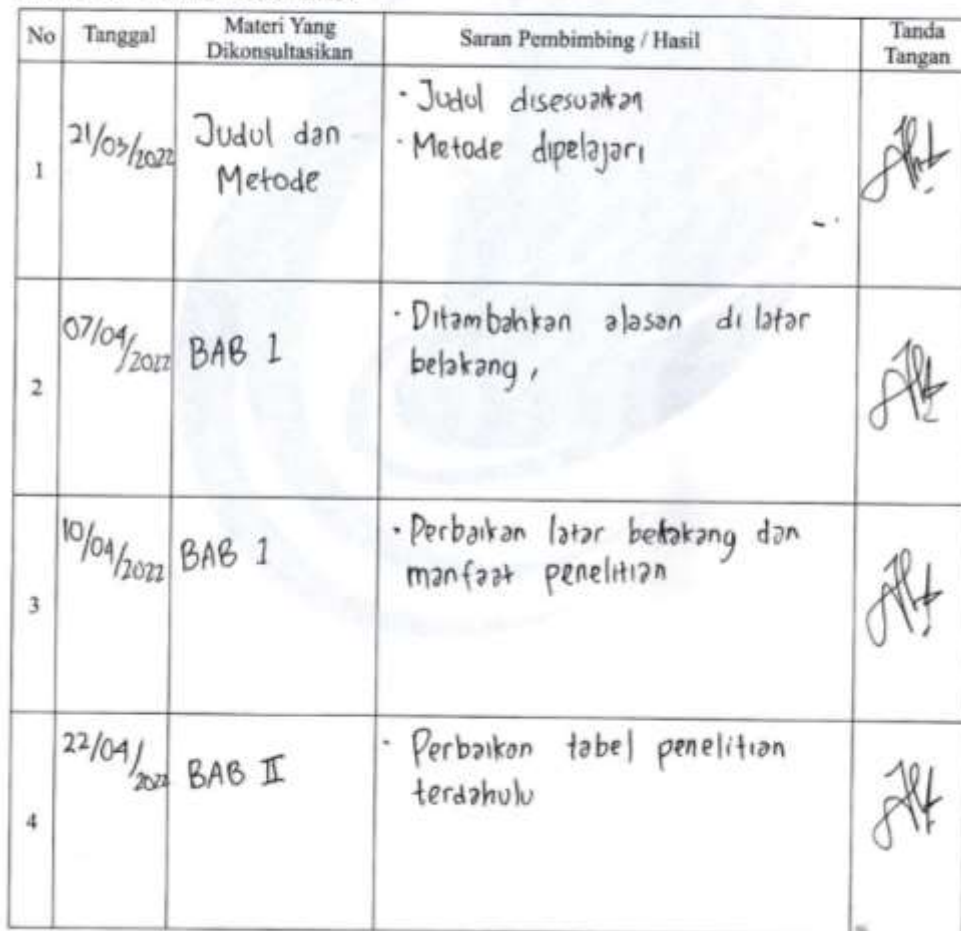 No Tanggal Materi Yang Dikonsultasikan Saran Pembimbing / Hasil Tanda Tangan
1 21/03/2022 Judul dan
Metode
· Judul disesuaikan
· Metode dipelajari
2 07/04/2022 BAB I
· Ditambahkan alasan di latar
belakang,
3 10/04/2022 BAB I
· Perbaikan latar belakang dan
manfaat penelitian
4 22/04/2022 BAB II
· Perbaikan tabel penelitian
terdahulu